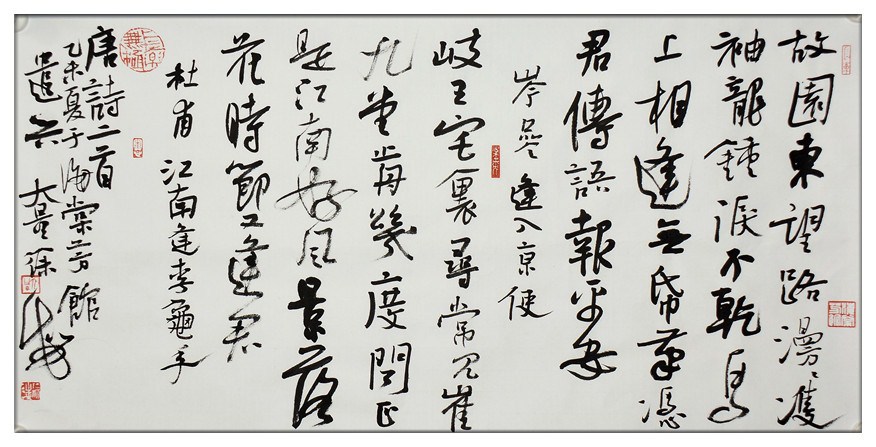 故園東望路漫々雙
袖龍鍾淚不乾馬
上相逢无帋筆憑
君傳語報平安
岑參逢入京使
岐王宅裏尋常見崔
九堂前幾度聞正
是江南好風景落
花時節又逢君
杜甫江南逢李龜年
唐詩二首
乙未夏于海棠芳館